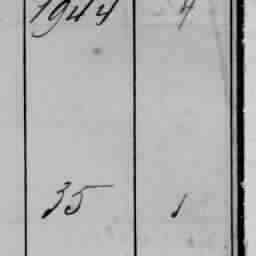 1944 4
35 1